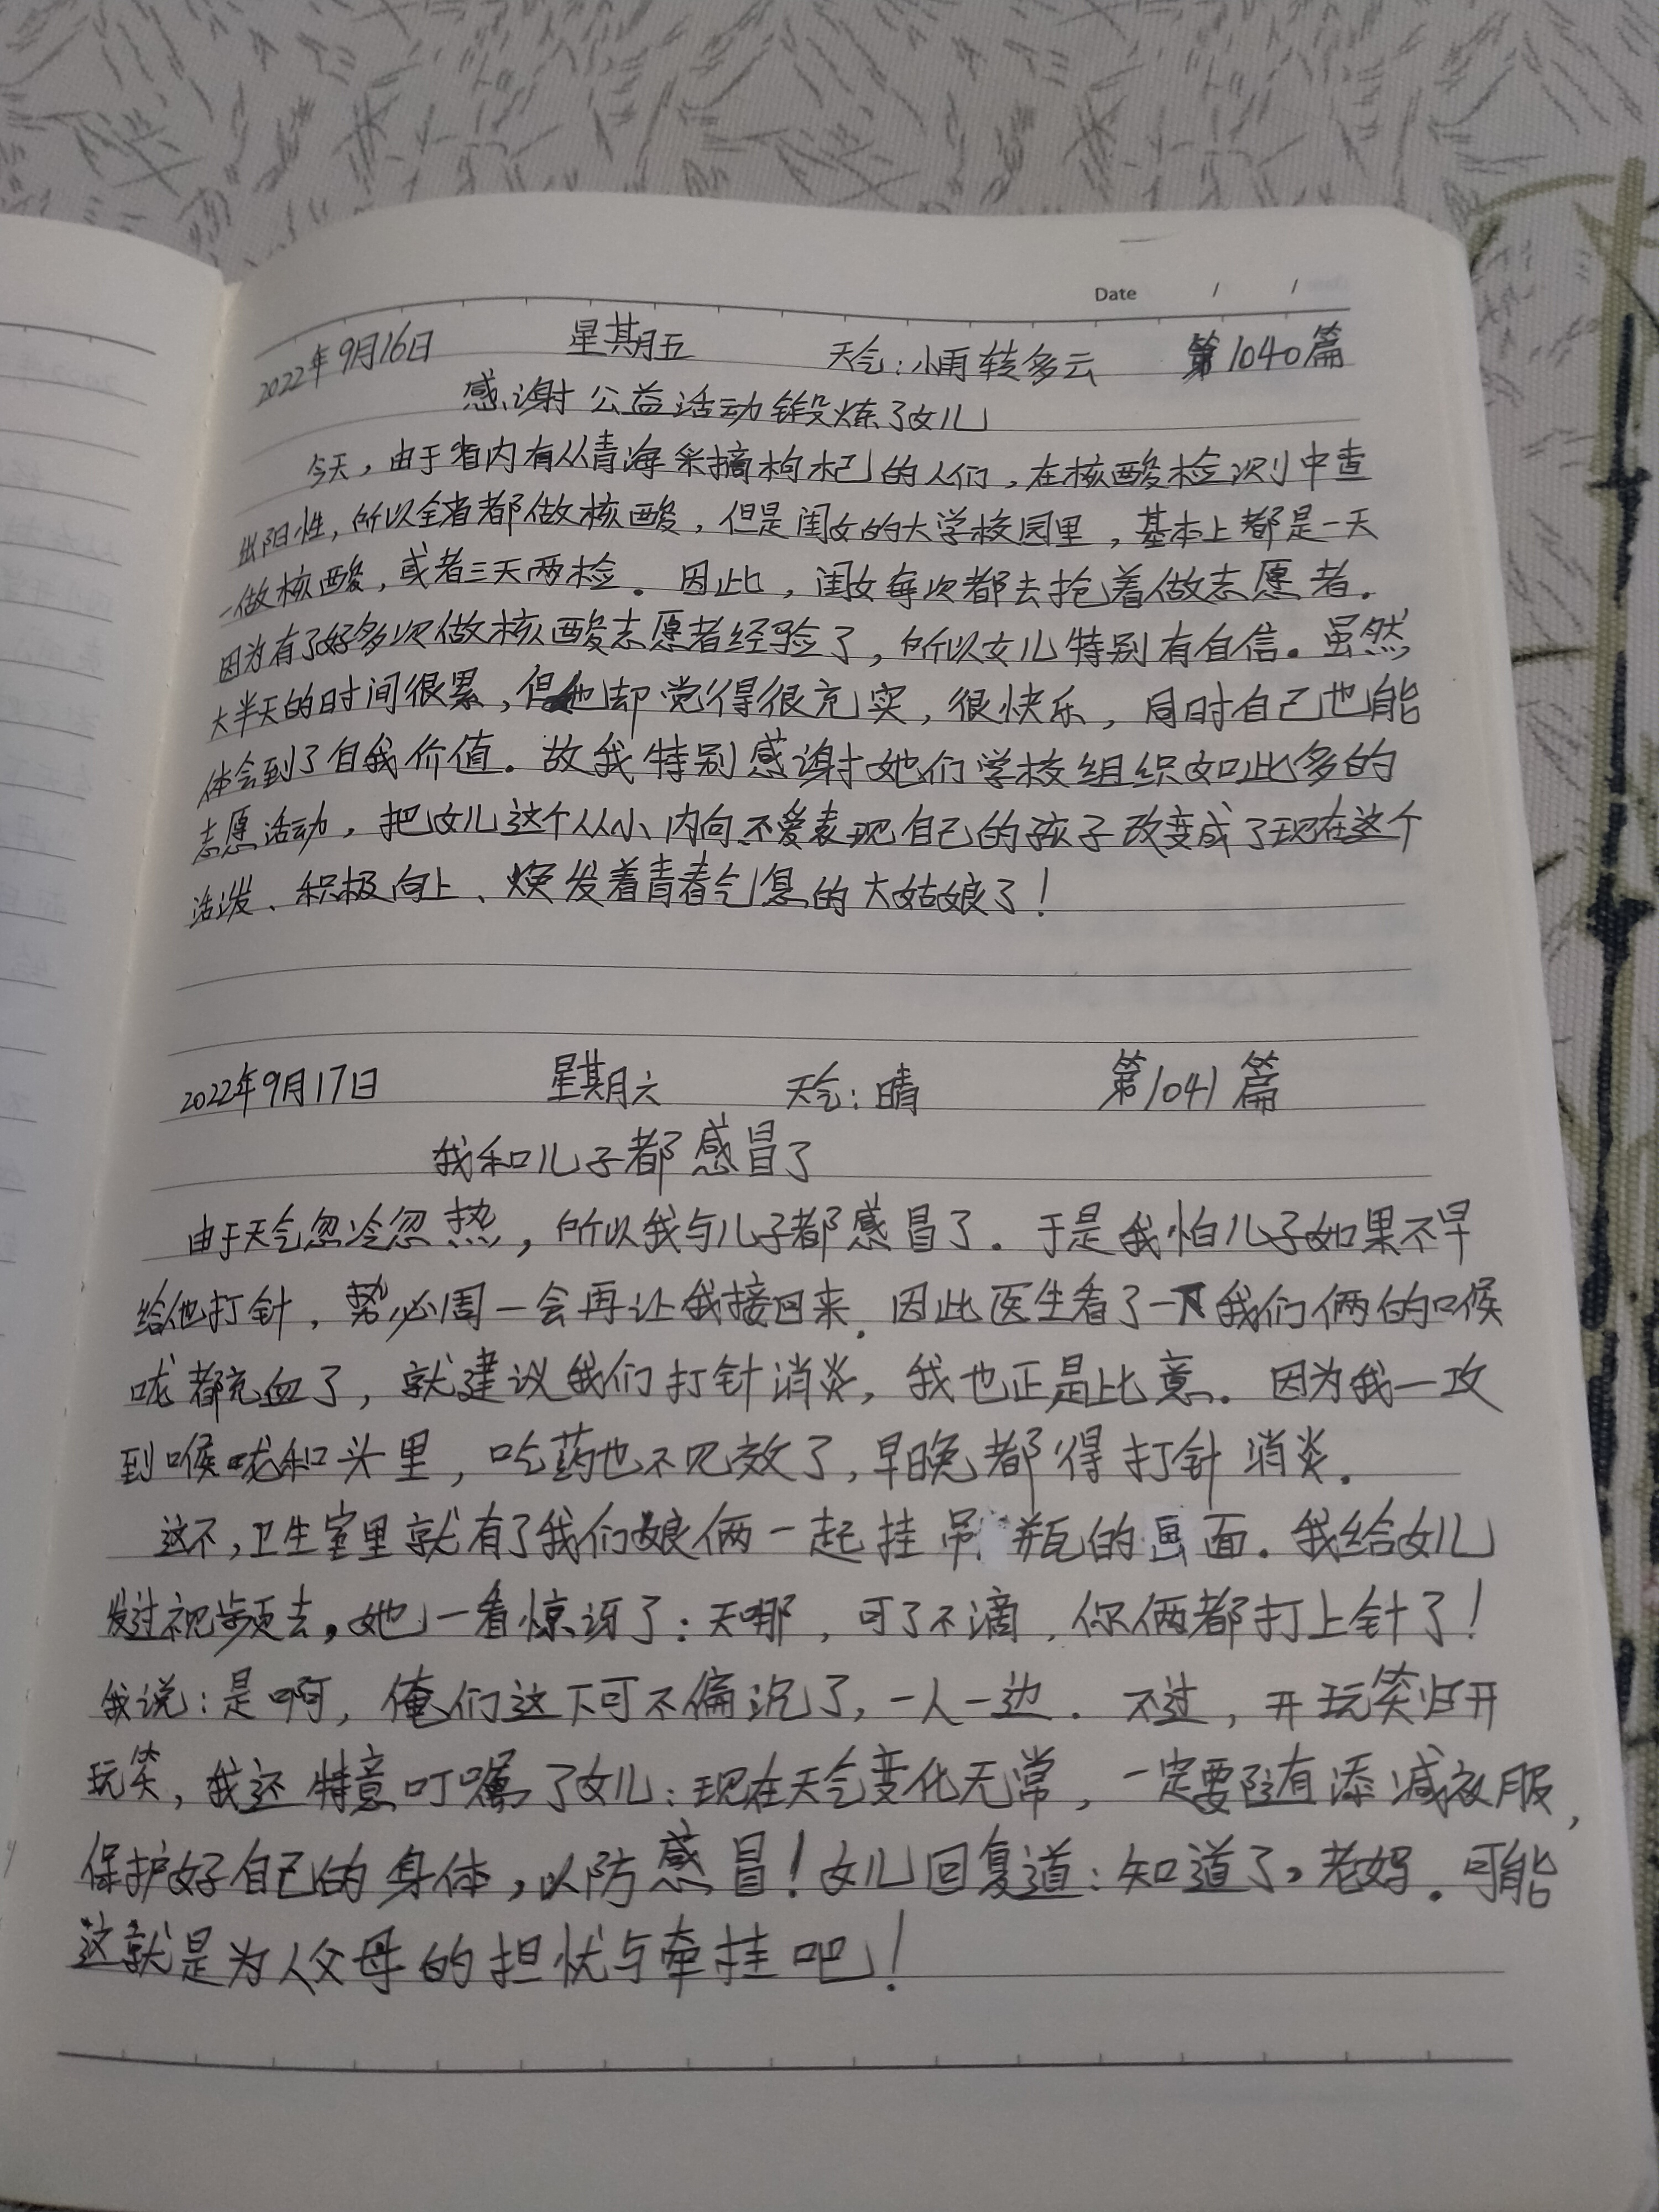 Date / /
2022年9月16日 星期五 天气:小雨转多云 第1040篇
感谢公益活动锻炼了女儿
今天,由于省内有从青海采摘枸杞的人们,在核酸检测中查
出阳性,所以全省都做核酸,但是闺女的大学校园里,基本上都是一天
一做核酸,或者三天两检。因此,闺女每次都去抢着做志愿者。
因为有了好多次做核酸志愿者经验了,所以女儿特别有自信。虽然
大半天的时间很累,但她却觉得很充实,很快乐,同时自己也能
体会到了自我价值。故我特别感谢她们学校组织如此多的
志愿活动,把女儿这个从小内向不爱表现自己的孩子改变成了现在这个
活泼、积极向上、焕发着青春气息的大姑娘了!
2022年9月17日 星期六 天气:晴 第1041篇
我和儿子都感冒了
由于天气忽冷忽热,所以我与儿子都感冒了。于是我怕儿子如果不早
给他打针,势必周一会再让我接回来。因此医生看了一下我们俩的喉
咙都充血了,就建议我们打针消炎,我也正是此意。因为我一攻
到喉咙和头里,吃药也不见效了,早晚都得打针消炎。
这不,卫生室里就有了我们娘俩一起挂吊瓶的画面。我给女儿
发过视频去,她一看惊讶了:天哪,可了不滴,你俩都打上针了!
我说:是啊,俺们这下可不偏沉了,一人一边。不过,开玩笑归开
玩笑,我还特意叮嘱了女儿:现在天气变化无常,一定要随有添减衣服,
保护好自己的身体,以防感冒!女儿回复道:知道了,老妈。可能
这就是为人父母的担忧与牵挂吧!